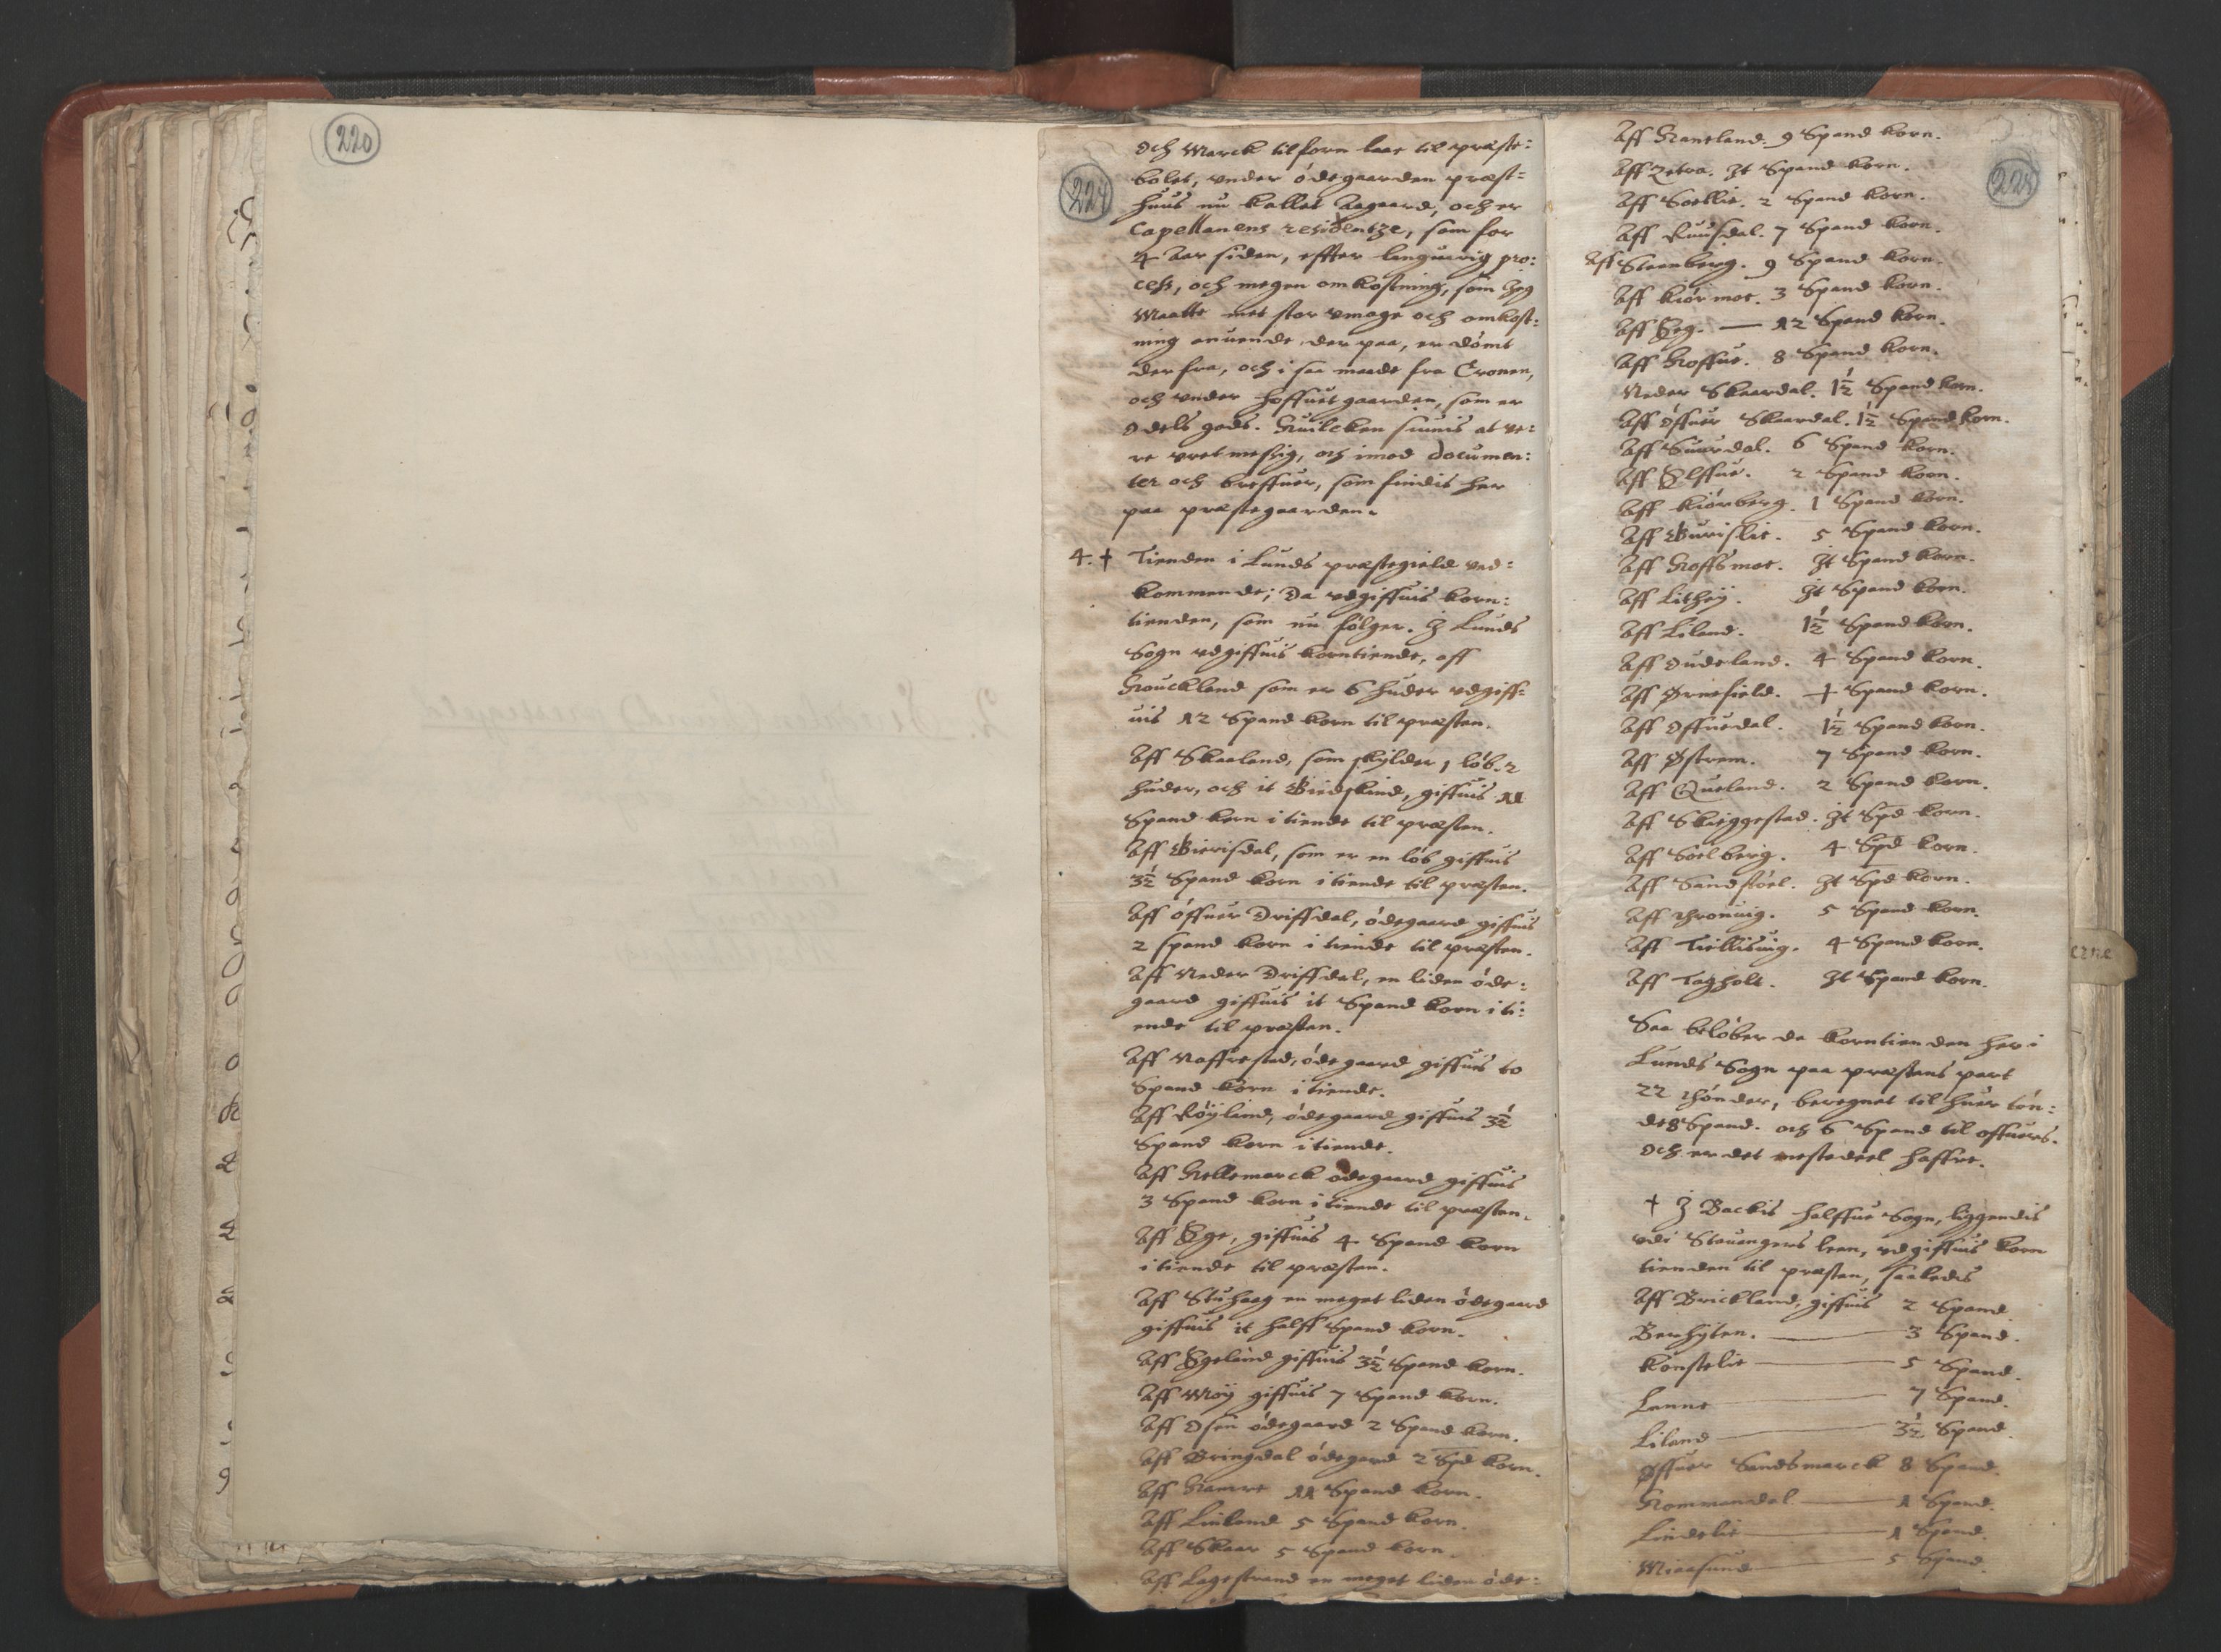 220
224
och Marck tilforn laae til præste:
bolet, vnder ödegaarden præst=
huus nu kallet Aagaard, och er
Capellanens residentze, som for
4 Aar siden, effter languerig pro:
cess, och megen omkostning, som Jeg
Maatte met stor vmage och omkost:
ning anuende der paa, er dömt
der fra, och i saa maade fra Cronen,
och vnder hoffuet gaarden, som er
Odels gods. Huilcken siunis at ve:
re vretmessig, och imod documen:
ter och breffuer, som findis her
paa præstegaarden.
4. † Tienden i Lunds præstegield ved:
kommende; Da vdgiffuis korn:
tienden, som nu fölger. J Lunds
Sogn vdgiffuis korntiende, aff
Houckland som er 6 huder vdgiff:
uis 12 Spand korn til præsten.
Aff Skaaland, som skylder 1 löb. 2
huder, och it Giedskind, giffuis 11
Spand korn i tiende til præsten.
Aff Gierisdal, som er en löb giffuis
3½ Spand korn i tiende til præsten.
Aff öffuer Driffdal, ödegaard giffuis
2 spand korn i tiende til præsten.
Aff Neder Driffdal, en liden öde:
gaard giffuis it Spand korn i ti:
ende til præsten.
Aff Naffrestad, ödegaard giffuis to
Spand korn i tiende.
Aff Röyland, ödegaard giffuis 3½
Spand korn i tiende.
Aff Hellemarck ödegaard giffuis
3 Spand korn i tiende til præsten.
Aff Ege, giffuis 4 Spand korn
i tiende til præsten.
Aff Stuhaag en meget liden ödegaard
giffuis it halff Spand korn.
Aff Egeland giffuis 3½ Spand korn.
Aff Moÿ giffuis 7 Spand korn.
Aff Osen ödegaard 2 Spand korn.
Aff Bringdal ödegard 2 Spd korn.
Aff Hamre 11 Spand korn.
Aff Linland 5 Spand korn.
Aff Skaar 5 Spand korn.
Aff Lagestrand en meget liden öde:
225
Aff Haneland. 9 Spand korn.
Aff Zetra. Jt Spand korn.
Aff Soellie. 2 Spand korn.
Aff Ruusdal. 7 Spand korn.
Aff Steenberg. 9 Spand korn.
Aff Kiörmoe. 3 Spand korn.
Aff Eeg. — 12 Spand korn.
Aff Hoffue. 8 Spand korn.
Neder Skaardal. 1½ Spand korn.
Aff Offuer Skaardal. 1½ Spand korn.
Aff Suurdal. 6 Spand korn.
Aff Elffue. 2 Spand korn.
Aff Kiörberg. 1 Spand korn.
Aff Gurislie. 5 Spand korn.
Aff Hoffsmoe. Jt Spand korn.
Aff Litheÿ. Jt Spand korn.
Aff Liland. 1½ Spand korn.
Aff Oudeland. 4 Spand korn.
Aff Ørnefield. † Spand korn.
Aff Offuedal. 1½ Spand korn.
Aff Østrem. 7 Spand korn.
Aff Queland. 2 Spand korn.
Aff Skieggestad. Jt Spd korn.
Aff Soelberg. 4 Spd korn.
Aff Sandstöel. Jt Spd korn.
Aff Thronuig. 5 Spand korn.
Aff Tiellisuig. 4 Spand korn.
Aff Tagholt. Jt Spand korn.
Saa belöber da korntienden her i
Lunds Sogn paa præstens part
22 Thönder, beregnet til huer tön:
de 8 Spand. och 6 Spand til offuers.
Och er det mestedeel haffre.
† J Backis halffue Sogn, liggendis
vdi Stauangers leen, vdgiffuis korn
tienden til præsten, saaledis
Aff Brickland, giffuis 2 Spand.
Berhÿten. — 3 Spand.
Konstelie — 5 Spand.
Lanne — 7 Spand.
Liland — 3½ Spand.
Øffuer Sandsmarck 8 Spand.
Hommendal — 1 Spand.
Lindelie — 1 Spand.
Miaasund — 5 Spand.